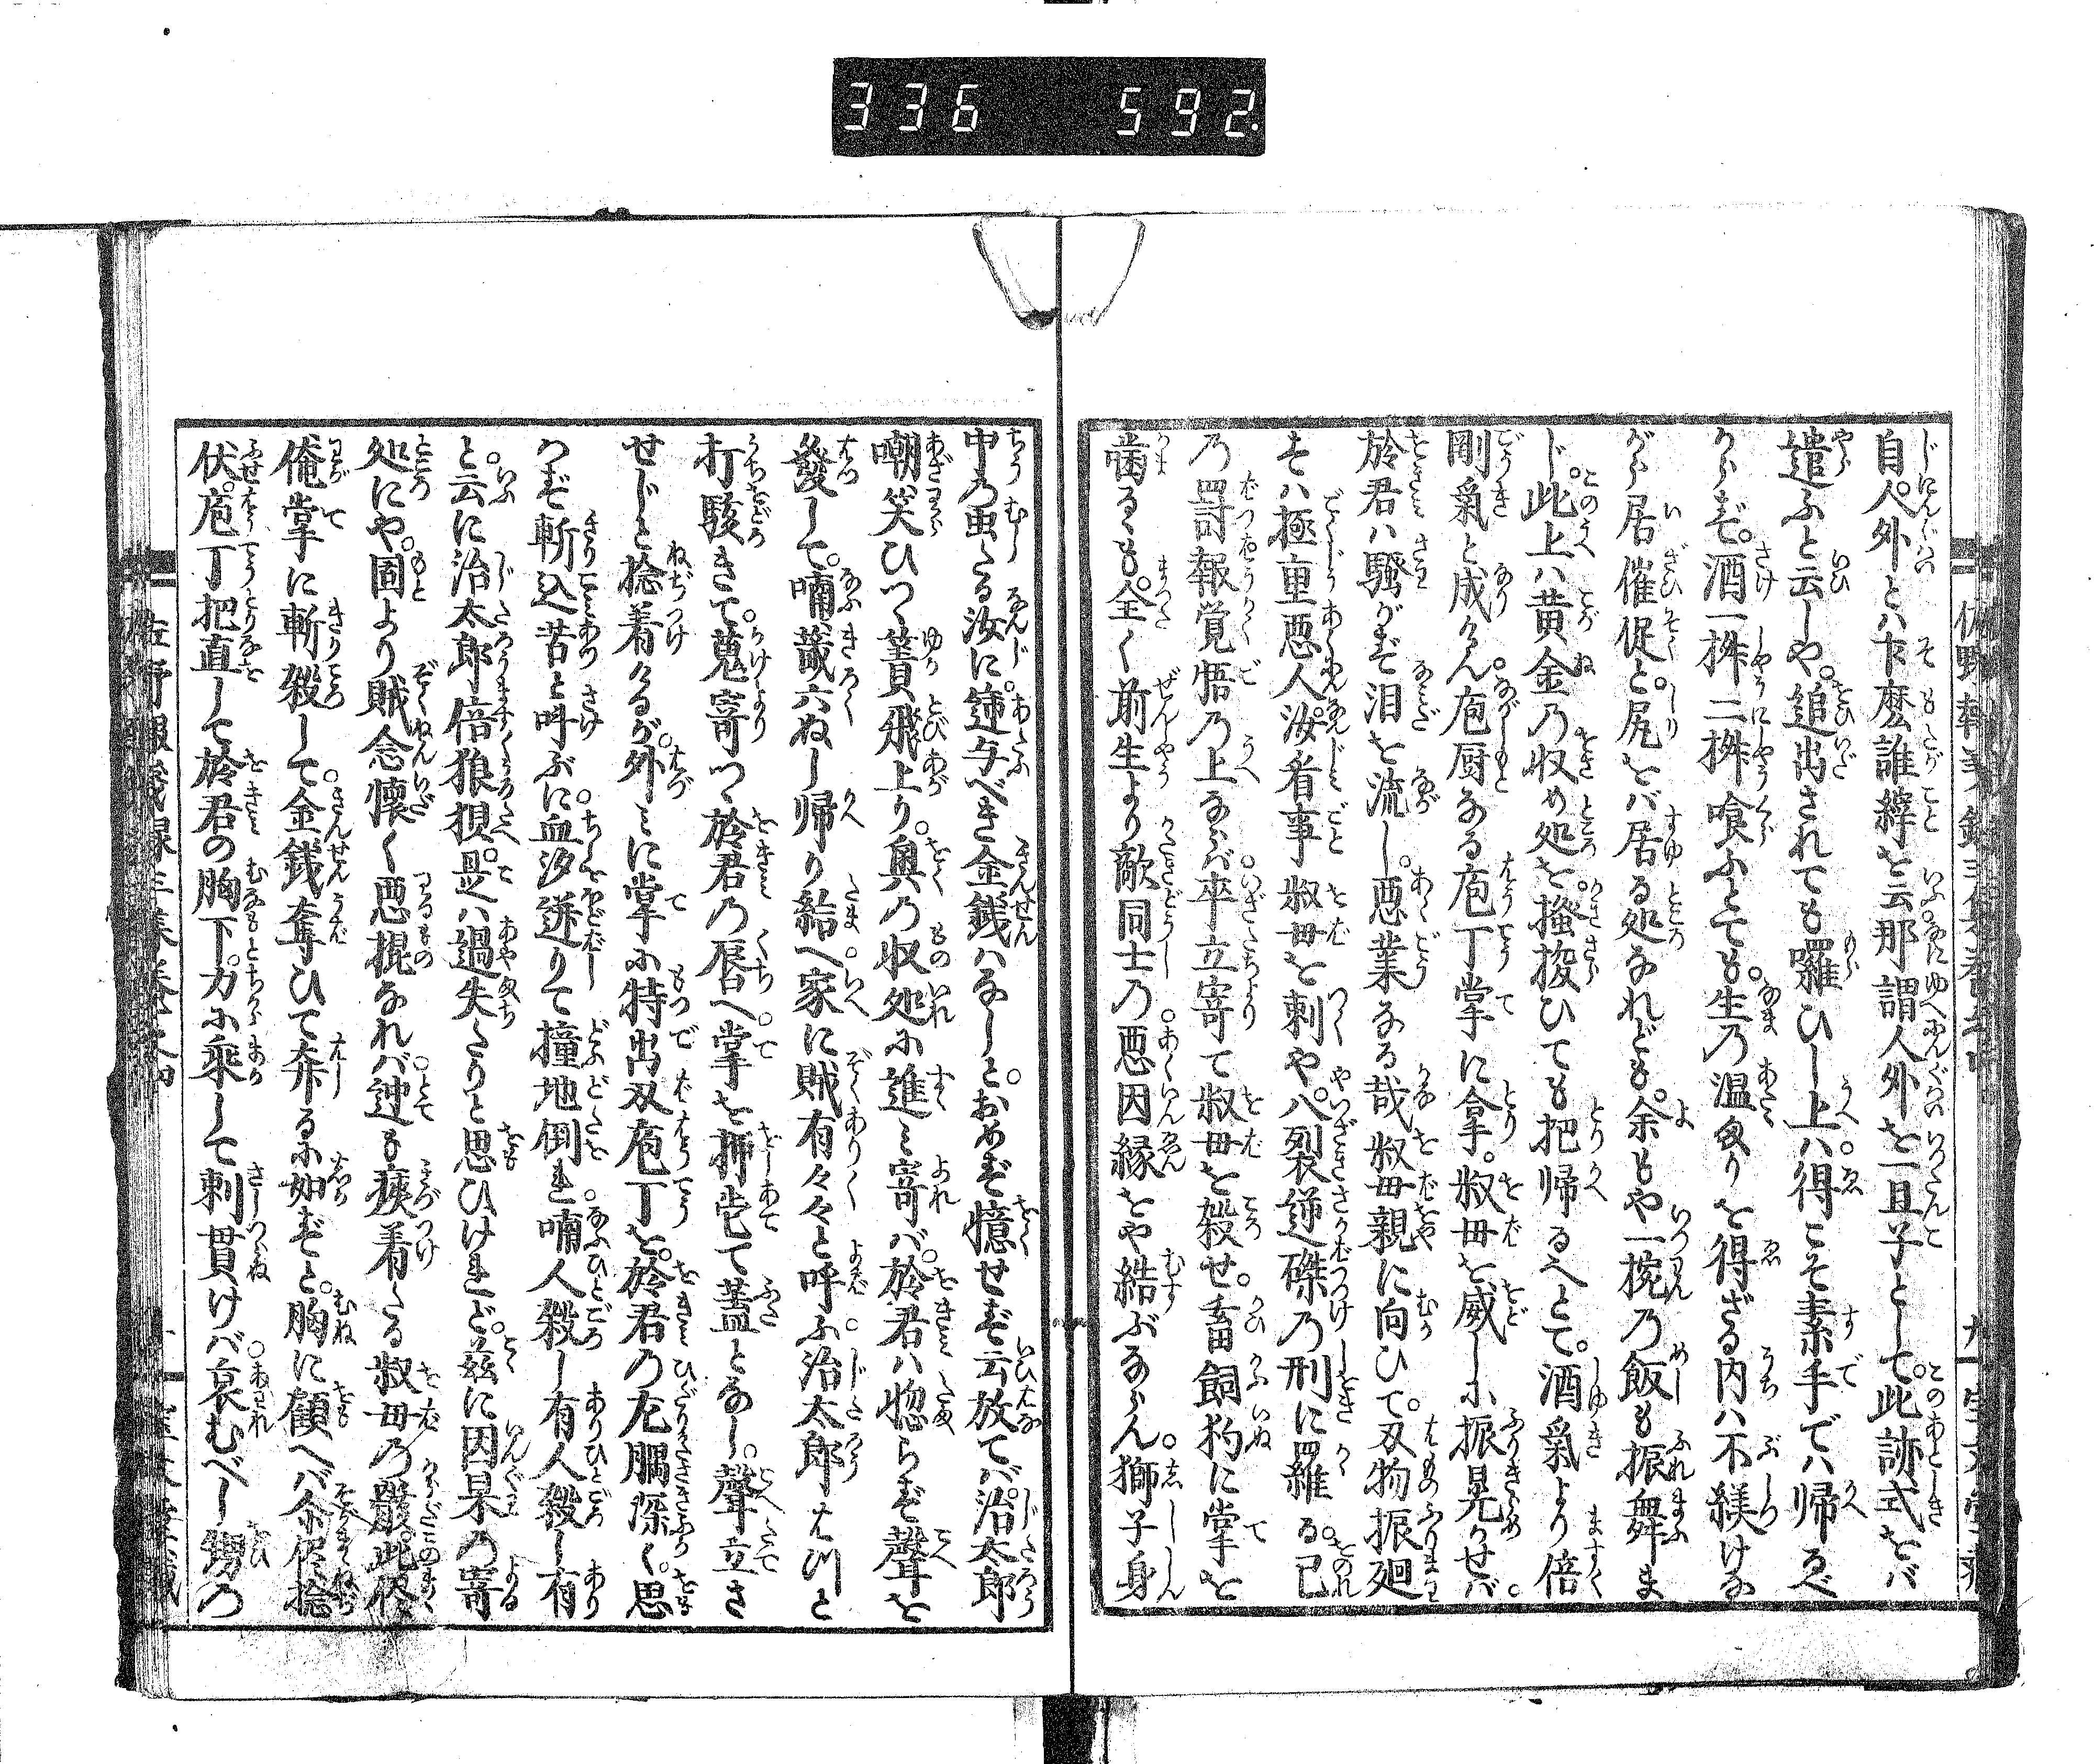 336 592
自。人外とハ卞麼誰縡を云那謂人外を一旦子として。此跡式をバ
遣ふと云しや。追出されても囉ひし上ハ得こそ素手でハ帰るべ
からず。酒一桝二桝喰ふとても。生乃温まりを得ざる内ハ不䊳けな
がら居催促と。尻をバ居る処なれども。余もや一椀乃飯も振舞ま
じ。此上ハ黄金乃収め処を。搔捜ひても把帰るべとて。酒氣より倍
剛氣と成けん。庖厨なる庖丁掌に拿。叔母を威しに振晃かせバ。
於君ハ騒がず泪を流し。悪業なる哉叔母親に向ひて。刄物振廻
すハ極重悪人。汝看事叔母を刺や。八裂逆磔乃刑に羅る。己
乃罸報覚悟乃上ならバ。卒立寄て叔母を殺せ。畜飼狗に掌を
噛るゝも。全く前生より敵同士乃。悪因縁をや結ぶならん。獅子身
中乃虫たる汝に。遣与べき金銭ハなしと。おめず憶せず云放てバ。治太郎
嘲笑ひつゝ簀飛上り。奥乃収処に進み寄バ。於君ハ惣らず聲を
發して。喃蔵六ぬし帰り給へ。家に賊有々々と呼ふ。治太郎はつと
打駭きて。蒐寄つゝ於君乃唇へ。掌を押當て蓋となし。聲立さ
せじと捻着けるが。外みに掌に持出刄庖丁を。於君乃左脇深く。思
つず斬込苦と叫ぶに。血汐迸りて撞地倒れ。喃人殺し有人殺し有
と。云に治太郎倍狼狽。是ハ過失たりと思ひけれど。茲に因果乃寄
処にや。固より賊念懐く悪棍なれバ。迚も痍着たる叔母乃骸。此侭
俺掌に斬殺して。金銭奪ひて奔るに如ずと。胸に顧へバ余侭捻
伏。庖丁把直して於君の胸下。力に乗して刺貫けバ。哀むべし甥の